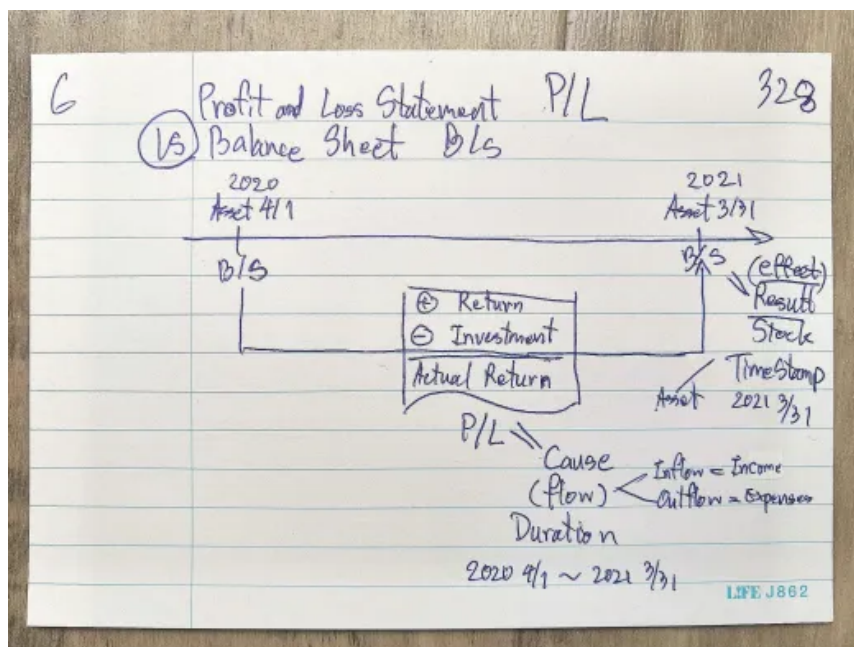 6
Profit and Loss Statement P/L
328
VS Balance Sheet B/S
2020
Asset 4/1
2021
Asset 3/31
B/S
B/S
(effect)
Result
Stock
TimeStamp
2021 3/31
Asset
⊕ Return
⊖ Investment
Actual Return
P/L
Cause
(flow)
Inflow = Income
Outflow = Expenses
Duration
2020 4/1 ~ 2021 3/31
LIFE J862